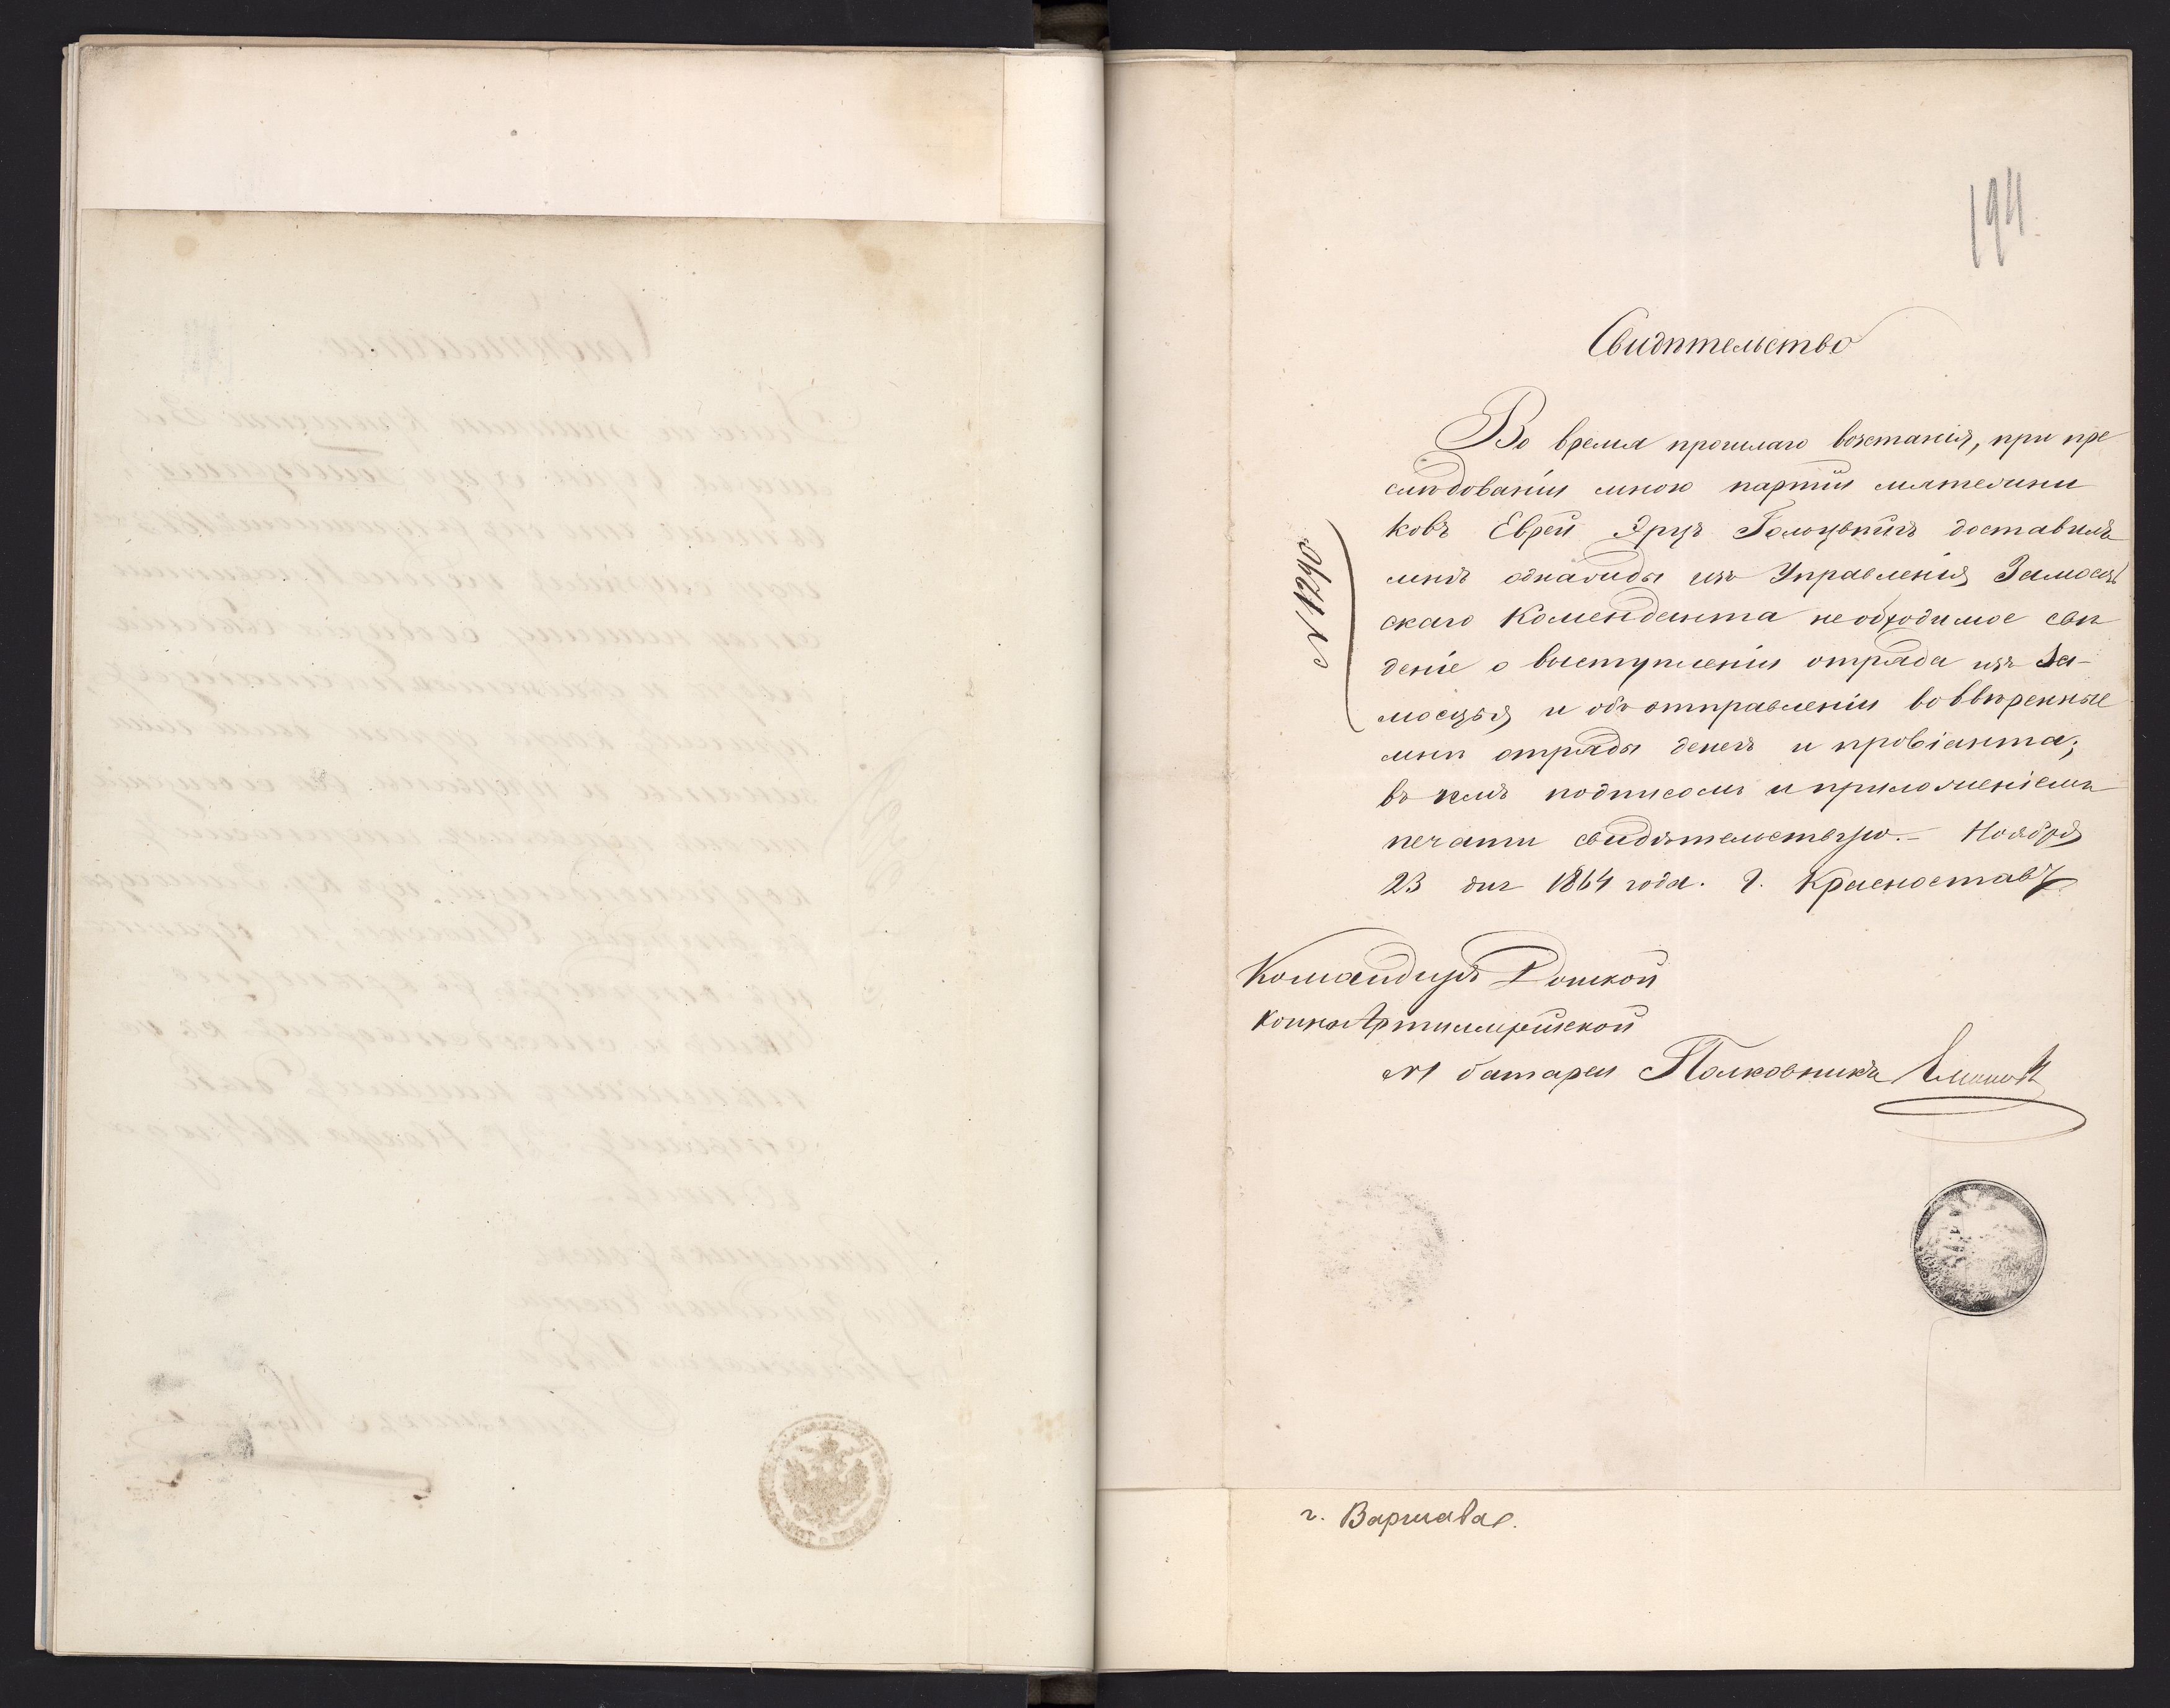 194.
Свидѣтельство
Во время прошлаго возстанія, при пре
слѣдованіи мною партіи мятежни
ковъ Еврей Эрцъ доставилъ
мнѣ однажды изъ Управленія Замосць
скаго Коменданта необходимое свѣ
деніе о выступленіи отряда изъ За-
мосцья и объ отправленіи во ввѣренные
мнѣ отряды денегъ и провіанта;
въ чемъ подписомъ и приложеніемъ
печати свидѣтельствую. — Ноября
23 дня 1864 года. Г. Красноставъ
№ 1790.
Командиръ Донской
Конно Артиллерійской
№ 1 батареи Полковникъ
г. Варшава.